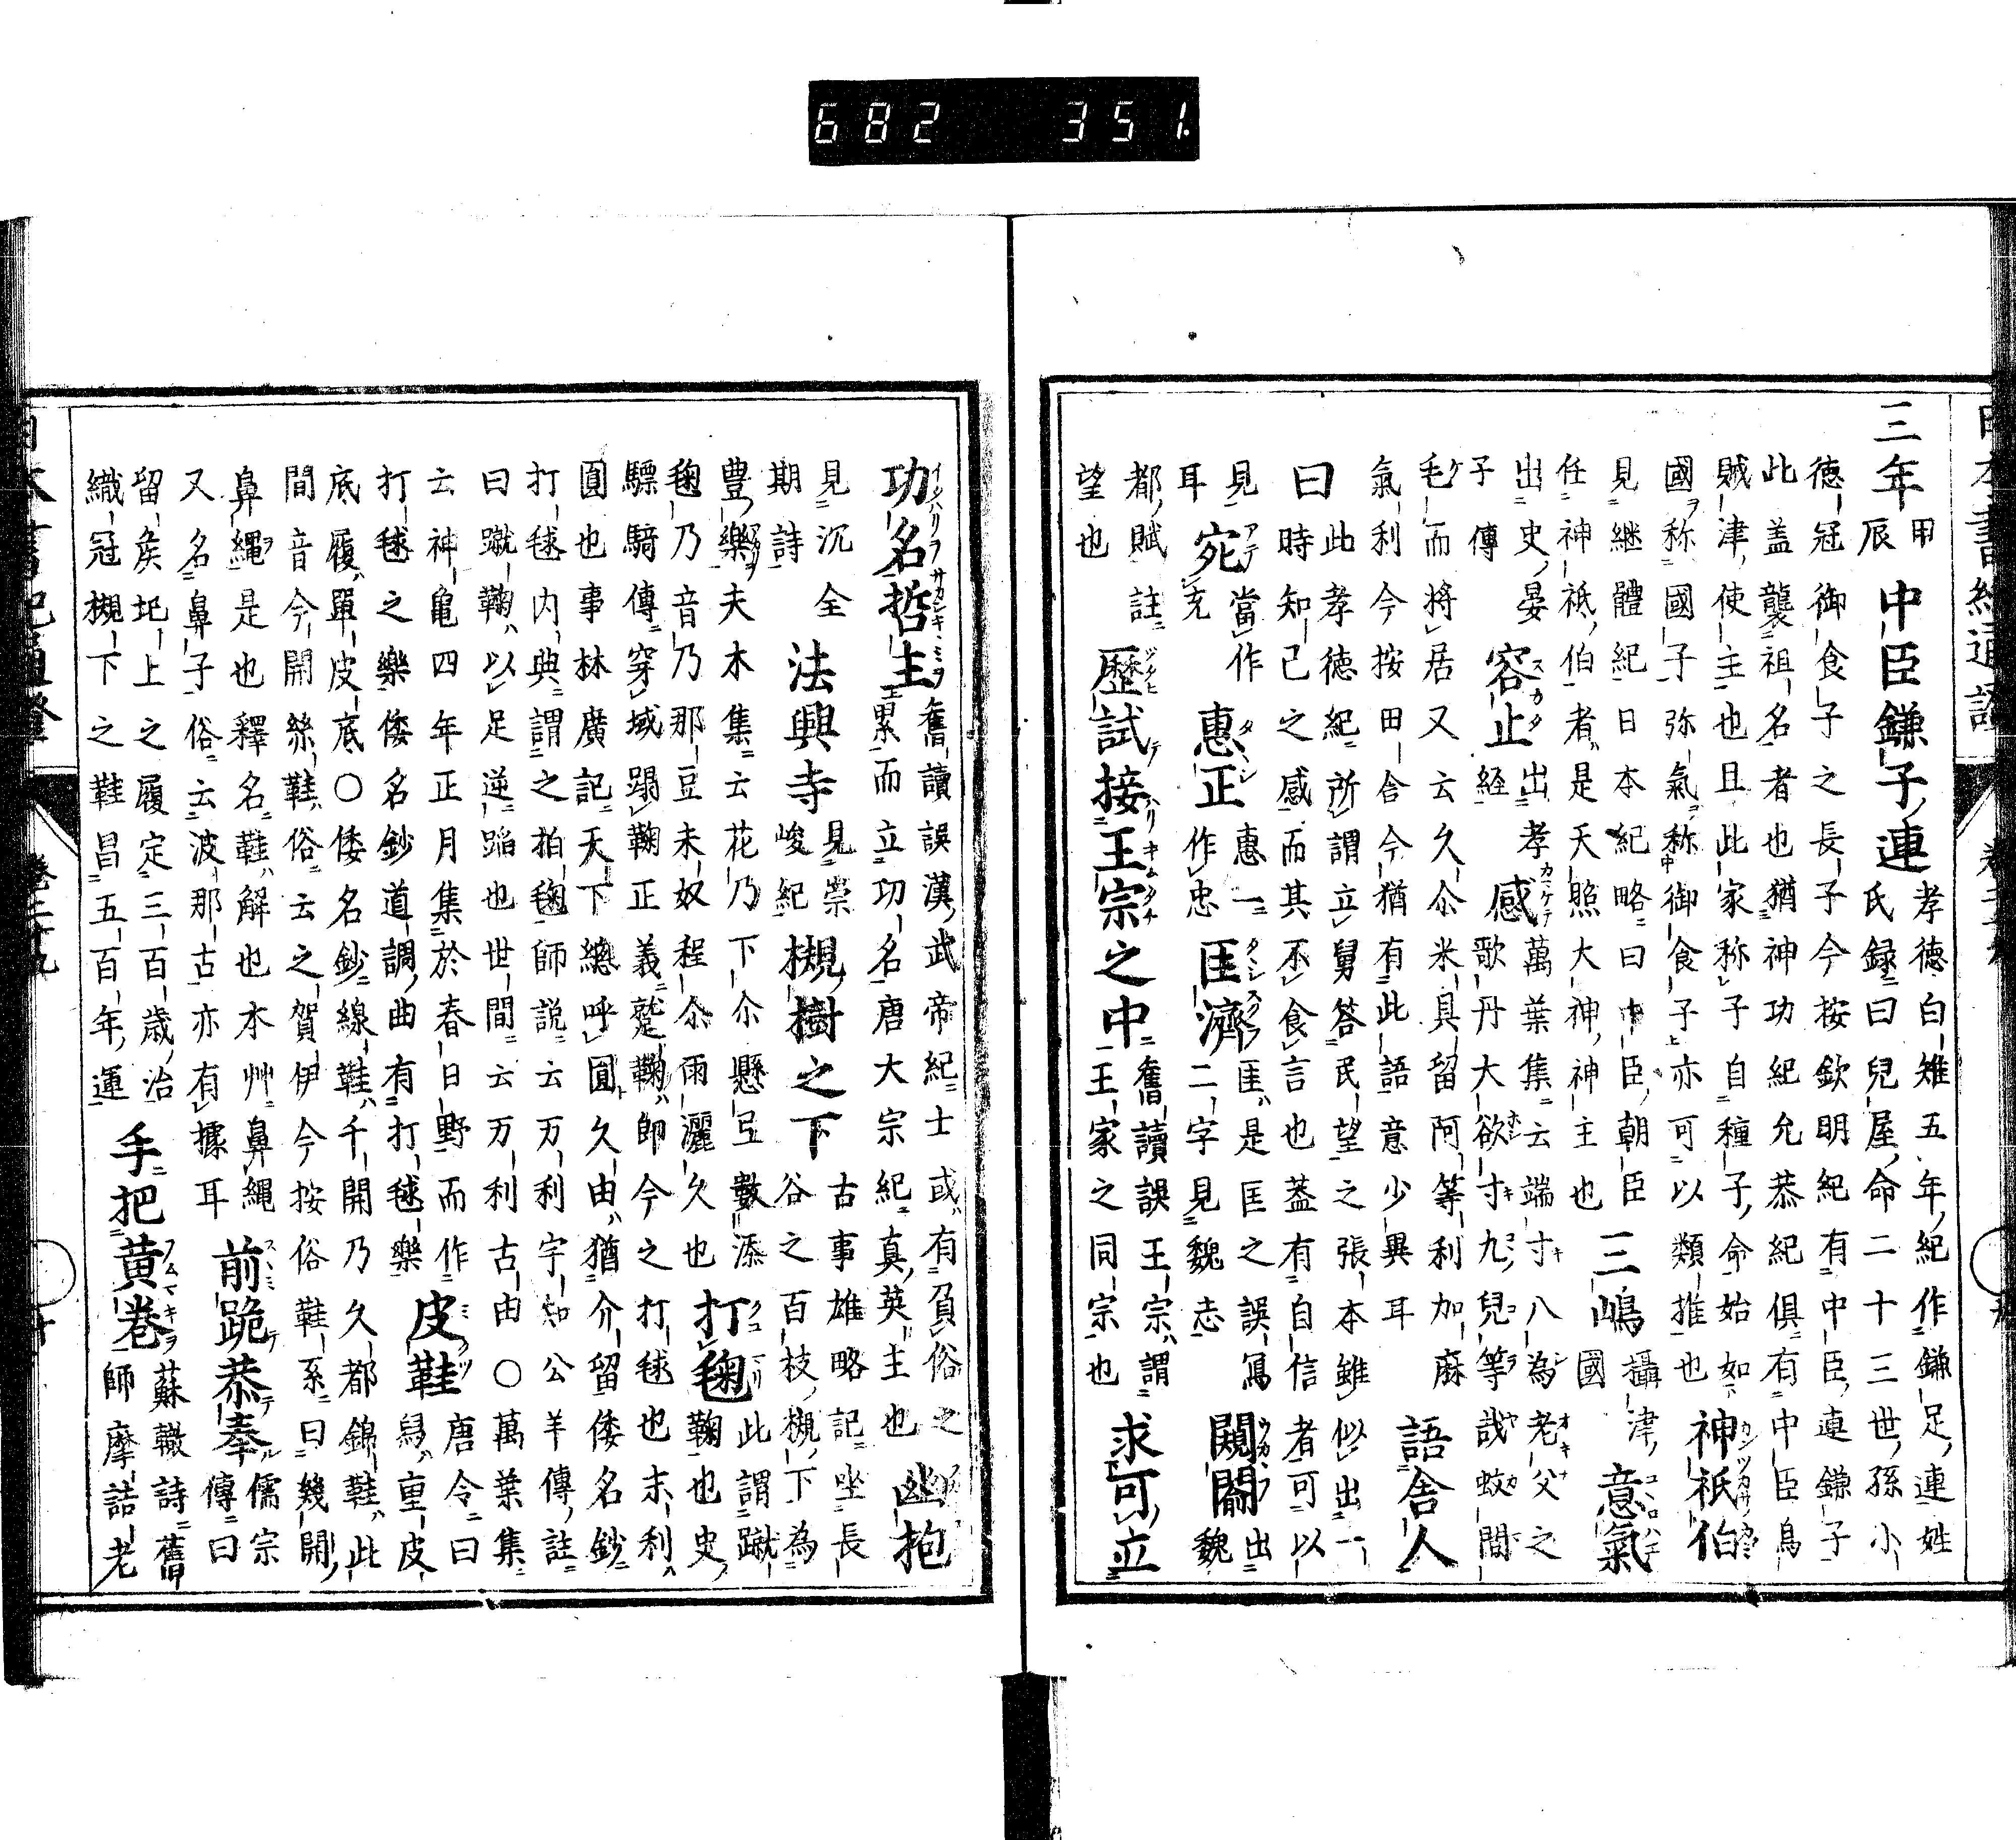 三年
甲
辰
中臣鎌子連
孝德白雉五年紀作鎌足連姓
氏録曰兒屋命二十三世孫小
德冠御食子之長子今按欽明紀有中臣連鎌子
此盖襲祖名者也猶神功紀允恭紀俱有中臣烏
賊津使主也且此家称子自種子命始如
國称國子弥氣称御食子亦可以類推也
神祇伯
見継體紀日本紀略曰中臣朝臣
任神祇伯者是天照大神神主也
三嶋
攝津
國
意氣
出史晏
子傳
容止
出孝
経
感
萬葉集云端寸八為老父之
歌丹大欲寸九兒等哉蚊間
毛而將居又云久尒米具留阿等利加麻
氣利今按田舎今猶有此語意少異耳
語舎人
曰
此孝德紀所謂立舅答民望之張本雖似出一
時知己之感而其不食言也蓋有自信者可以
見
耳
宛
當作
充
惠正
惠一
作忠
匡濟
匡是匡之誤寫
二字見魏志
闚關
出魏
都賦註
望也
歴試接王宗之中
舊讀誤王宗謂
王家之同宗也
求可立
功名哲主
舊讀誤漢武帝紀士或有負俗之
累而立功名唐大宗紀真英主也
幽抱
見沉全
期詩
法興寺
見崇
峻紀
槻樹之下
古事雄略記坐長
谷之百枝槻下為
豊樂夫木集云花乃下尒懸豆數添
毱乃音乃那豆未奴程尒雨灑久也
打毱
此謂蹴
鞠也史
驃騎傳穿域蹋鞠正義蹵鞠師今之打毬也末利
圓也事林廣記天下總呼圓久由猶介留倭名鈔
打毬内典謂之拍毱師說云万利宇知公羊傳註
曰蹴鞠以足逆蹈也世間云万利古由〇萬葉集
云神亀四年正月集於春日野而作
打毬之樂倭名鈔道調曲有打毬樂
皮鞋
唐令曰
舄重皮
底履單皮底〇倭名鈔線鞋千開乃久都錦鞋此
間音今開絲鞋俗云之賀伊今按俗鞋系曰幾開
鼻縄是也釋名鞋解也本艸鼻縄
又名鼻子俗云波那古亦有據耳
前跪恭奉
儒宗
傳曰
留矦圯上之履定三百歳治
織冠槻下之鞋昌五百年運
手把黄卷
蘇轍詩舊
師摩詰老